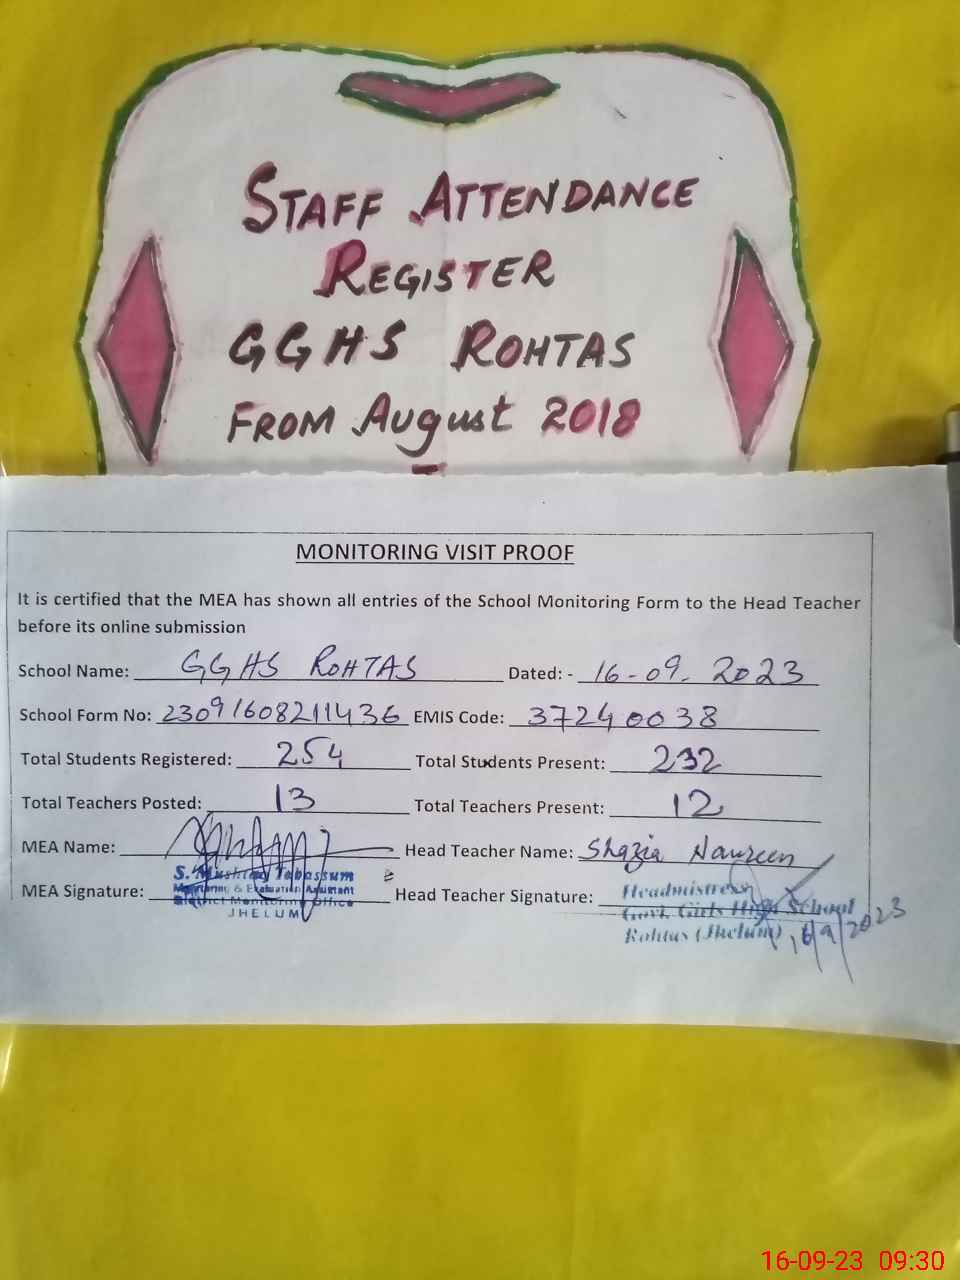 STAFF ATTENDANCE
REGISTER
GGHS ROHTAS
FROM August 2018
MONITORING VISIT PROOF
It is certified that the MEA has shown all entries of the School Monitoring Form to the Head Teacher
before its online submission
School Name: GGHS ROHTAS Dated: - 16-09-2023
School Form No: 23091608211436 EMIS Code: 37240038
Total Students Registered: 254 Total Students Present: 232
Total Teachers Posted: 13 Total Teachers Present: 12
MEA Name: Head Teacher Name: Shazia Naureen
S. Mushtaq Tabassum
MEA Signature: Head Teacher Signature:
Monitoring & Evaluation Assistant
District Monitoring Office
JHELUM
Headmistress
Govt. Girls High School
Rohtas (Jhelum) 16/9/2023
16-09-23 09:30